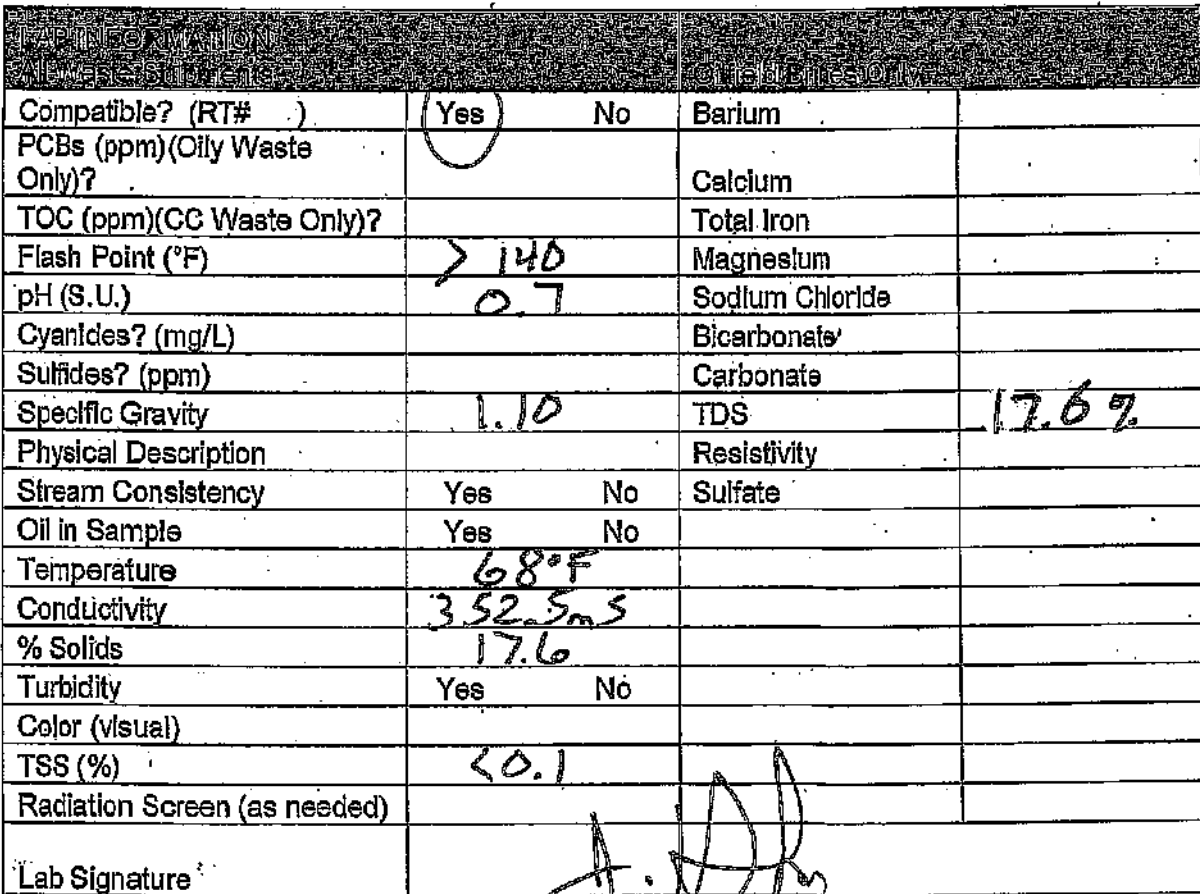 LAB INFORMATION
All Waste Shipments
Oilfield Brines Only
Compatible? (RT# ) Yes No Barium
PCBs (ppm)(Oily Waste
Only)? Calcium
TOC (ppm)(CC Waste Only)? Total Iron
Flash Point (°F) > 140 Magnesium
pH (S.U.) 0.7 Sodium Chloride
Cyanides? (mg/L) Bicarbonate
Sulfides? (ppm) Carbonate
Specific Gravity 1.10 TDS 17.6 %
Physical Description Resistivity
Stream Consistency Yes No Sulfate
Oil in Sample Yes No
Temperature 68°F
Conductivity 352.5mS
% Solids 17.6
Turbidity Yes No
Color (visual)
TSS (%) <0.1
Radiation Screen (as needed)
Lab Signature